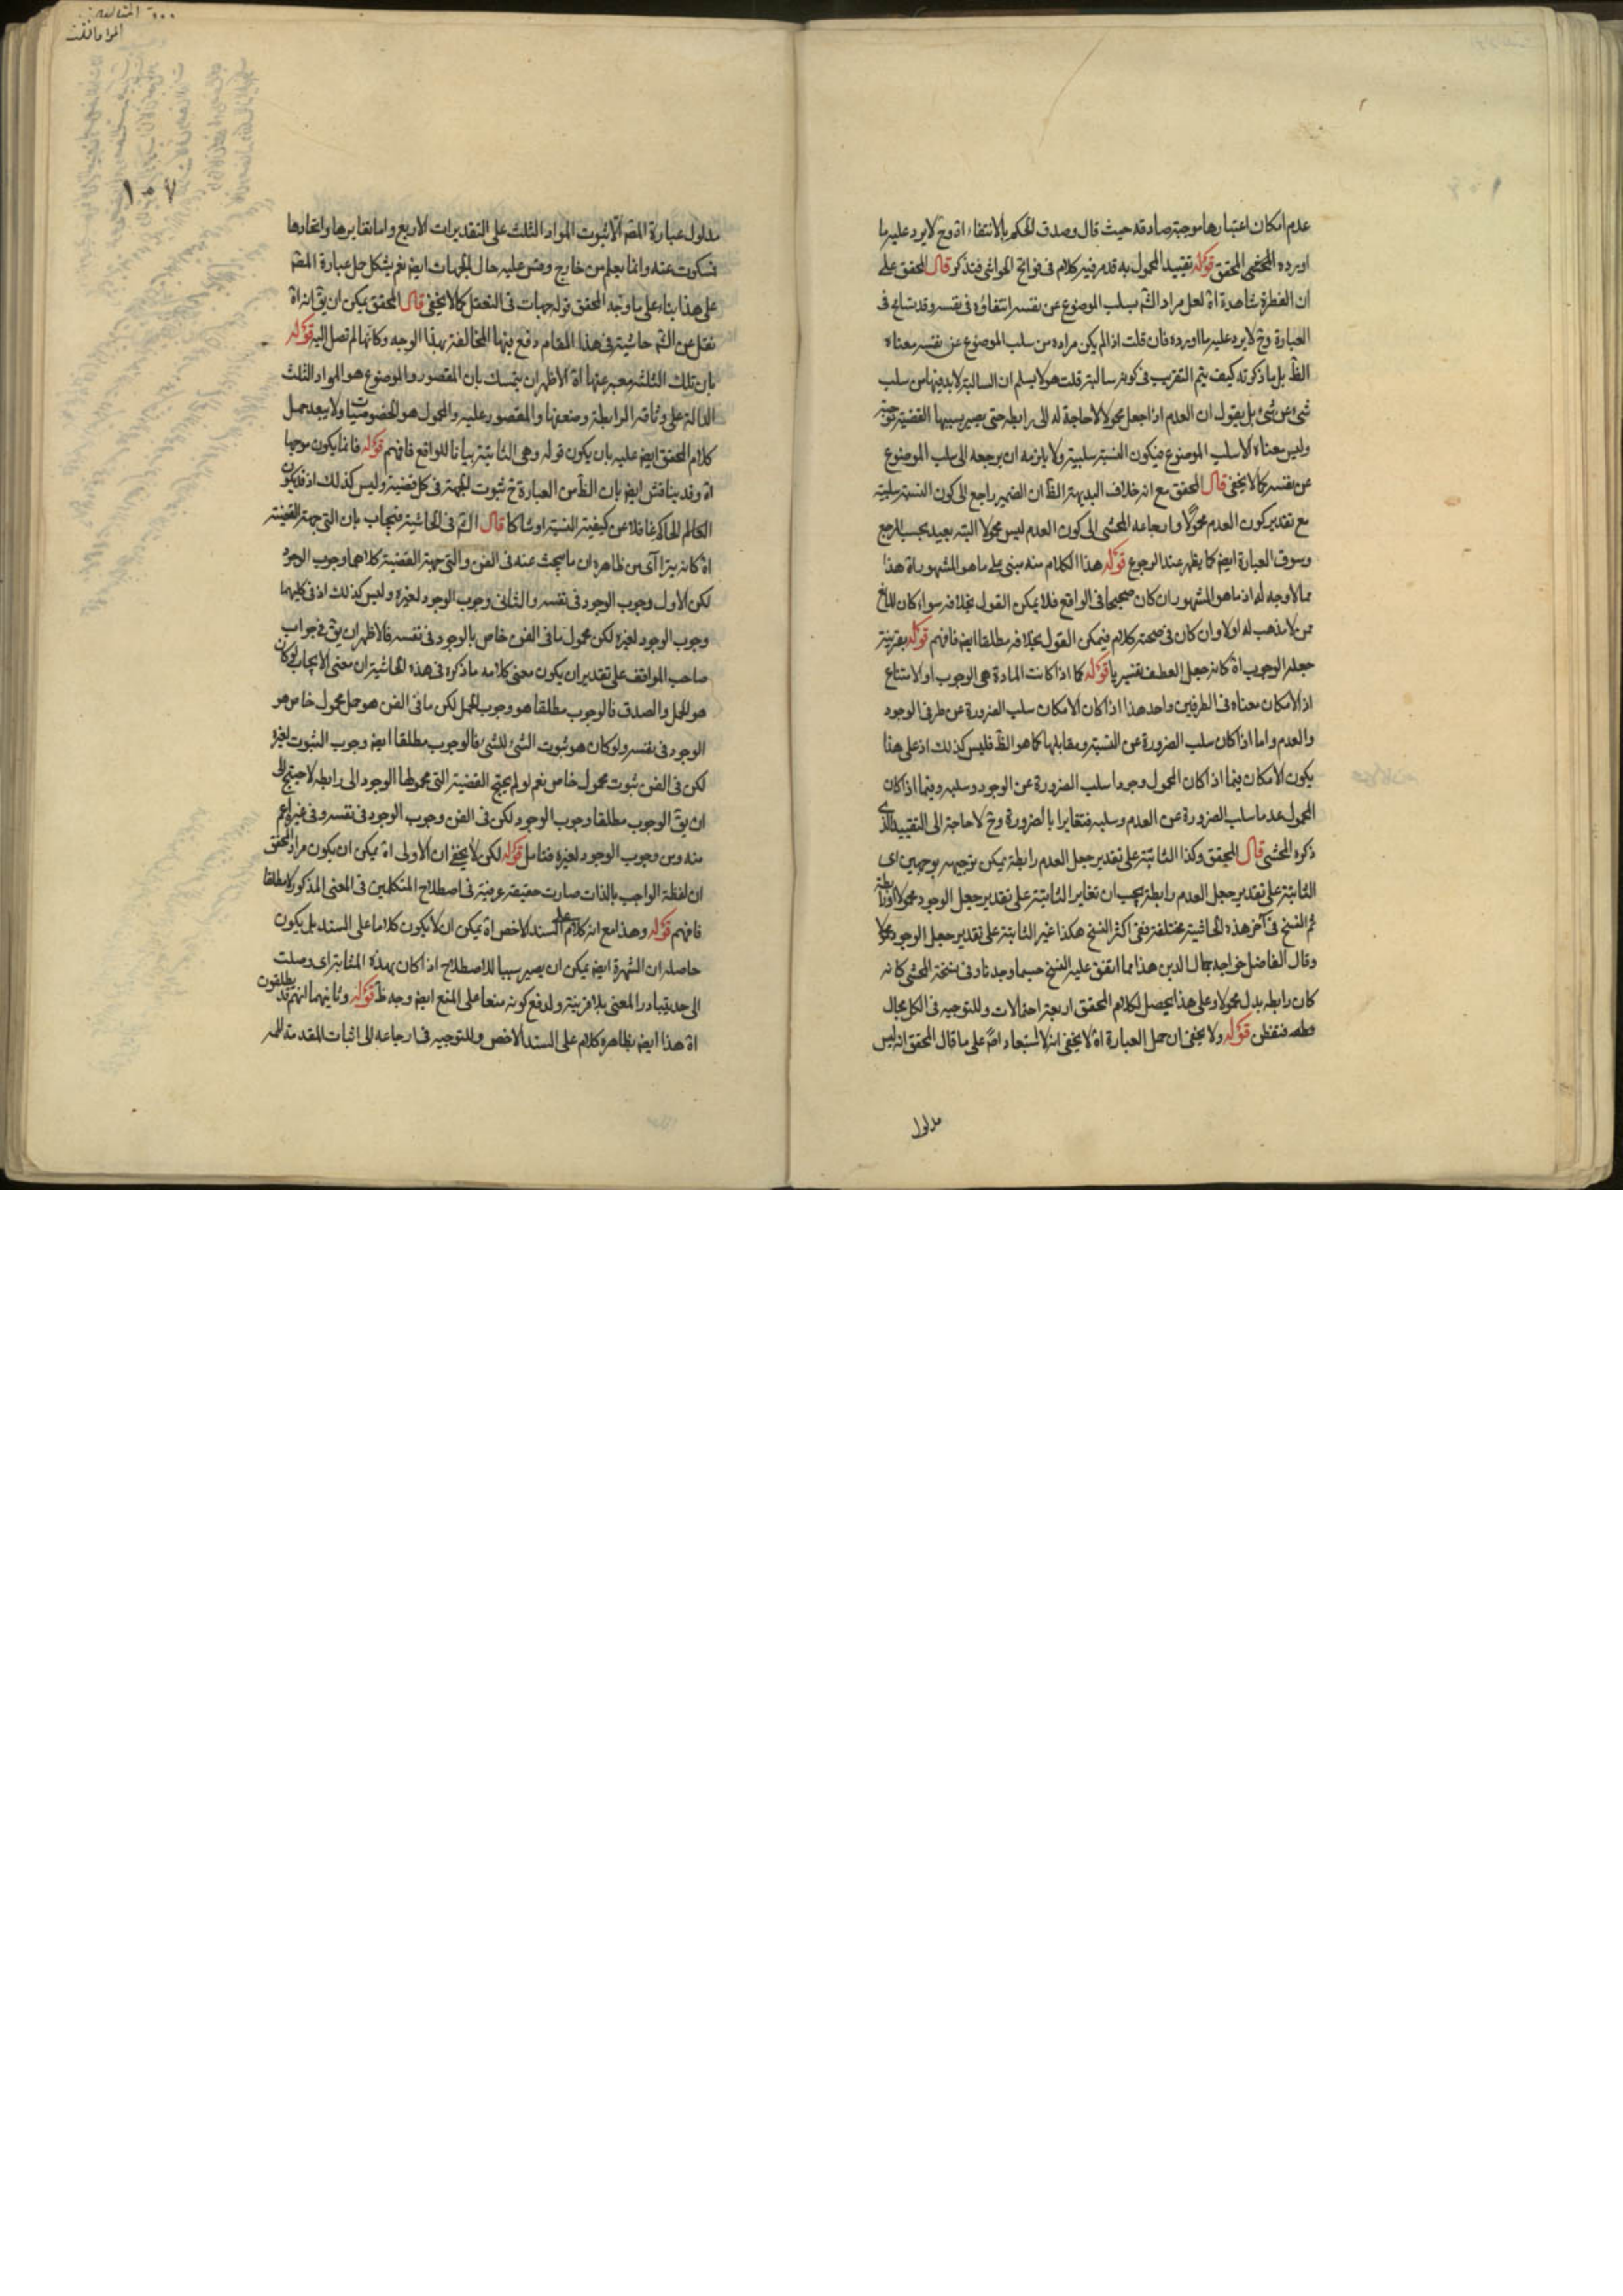 عدم امكان اعتبارها موجبة صادقة حيث قال وصدق الحكم بالانتفاء اه وح لا يرد عليه ما
اورده المحشى المحقق قوله تقييد المحمول به قد مر فيه كلام فى فواتح الحواشى فتذكر قال المحقق على
ان الفطرة شاهدة اه لعل مراد الش بسلب الموضوع عن نفسه انتفاؤه فى نفسه وقد تسامح فى
العبارة وح لا يرد عليه ما اورده فان قلت اذا لم يكن مراده من سلب الموضوع عن نفسه معناه
الظ بل ما ذكرته كيف يتم التقريب فى كونه سالبة قلت هو لا يسلم ان السالبة لا بد فيها من سلب
شىء عن شىء بل يقول ان العدم اذا جعل محمولا لا حاجة له الى رابطه حتى يصير بسببها القضية موجبة
وليس معناه الا سلب الموضوع فيكون النسبة سلبية ولا يلزمه ان يرجعه الى سلب الموضوع
عن نفسه كما لا يخفى قال المحقق مع انه خلاف البديهة الظ ان الضمير راجع الى كون النسبة سلبية
مع تقدير كون العدم محمولا وارجاعه المحشى الى كون العدم ليس محمولا البتة بعيد بحسب المرجع
وسوق العبارة ايض كما يظهر عند الرجوع قوله هذا الكلام منه مبنى على ما هو المشهور اه هذا
مما لا وجه له اذ ما هو المشهور ان كان صحيحا فى الواقع فلا يمكن القول بخلافه سواء كان
ممن لا مذهب له اولا وان كان فى صحته كلام فيمكن القول بخلافه مطلقا ايض فافهم قوله بقرينة
جعله الوجوب اه كانه جعل العطف تفسيريا قوله كما اذا كانت المادة هى الوجوب او الامتناع
اذ الامكان معناه فى الطرفين واحد هذا اذا كان الامكان سلب الضرورة عن طرفى الوجود
والعدم واما اذا كان سلب الضرورة عن النسبة ومقابلها كما هو الظ فليس كذلك اذ على هذا
يكون الامكان فيما اذا كان المحمول وجودا سلب الضرورة عن الوجود وسلبه وفيما اذا كان
المحمول عدما سلب الضرورة عن العدم وسلبه فتغايرا بالضرورة وح لا حاجة الى التقييد الذى
ذكره المحشى قال المحقق وكذا الثابتة على تقدير جعل العدم رابطة يمكن توجيهه بوجهين اى
الثابتة على تقدير جعل العدم رابطة يجب ان تغاير الثابتة على تقدير جعل الوجود محمولا او رابطة
ثم النسخ فى آخر هذه الحاشية مختلفة ففى اكثر النسخ هكذا غير الثابتة على تقدير جعل الوجود محمولا
وقال الفاضل خواجه جمال الدين هذا مما اتفق عليه النسخ حسبما وجدنا وفى نسخة المحشى كانه
كان رابطه بدل محمولا وعلى هذا يحصل لكلام المحقق اربعة احتمالات وللتوجيه فى الكل مجال
فتفطن قوله ولا يخفى ان حمل العبارة اه لا يخفى انه لا استبعاد اصلا على ما قال المحقق انه ليس
مدلول
المواقف
١٠٧
مدلول عبارة المص الا ثبوت المواد الثلث على التقديرات الاربع واما تغايرها واتحادها
فسكوت عنه وانما يعلم من خارج وقس عليه حال الجهات ايض نعم يشكل حمل عبارة المص
على هذا بناء على ما وجد المحقق قوله جهات فى التعقل كما لا يخفى قال المحقق يمكن ان يق انه اه
نقل عن الش حاشية فى هذا المقام دفع فيها المخالفة بهذا الوجه وكانها لم تصل اليه قوله
بان تلك الثلثة معبر عنها اه الاظهر ان يتمسك بان المقصور والموضوع هو المواد الثلث
الدالة على وثاقة الرابطة وضعفها والمقصور عليه والمحمول هو الخصوصيات ولا يبعد حمل
كلام المحقق ايض عليه بان يكون قوله وهى الثابتة بيانا للواقع فافهم قوله فانما يكون موجها
اه وقد يناقش ايض بان الظ من العبارة ح ثبوت الجهة فى كل قضية وليس كذلك اذ قد يكون
الحاكم غافلا عن كيفية النسبة او شاكا قال الش فى الحاشية فيجاب بان التى جهة القضية
اه كانه يترا آى من ظاهره ان ما يبحث عنه فى الفن والتى جهة القضية كلاهما وجوب الوجود
لكن الاول وجوب الوجود فى نفسه والثانى وجوب الوجود لغيره وليس كذلك اذ فى كليهما
وجوب الوجود لغيره لكن محمول ما فى الفن خاص بالوجود فى نفسه فالاظهر ان يق فى جواب
صاحب المواقف على تقدير ان يكون معنى كلامه ما ذكره فى هذه الحاشية ان معنى الايجاب لو كان
هو الحمل والصدق فالوجوب مطلقا هو وجوب الحمل لكن ما فى الفن هو حمل محمول خاص هو
الوجود فى نفسه ولو كان هو ثبوت الشىء للشىء فالوجوب مطلقا ايض وجوب الثبوت لغيره
لكن فى الفن ثبوت محمول خاص نعم لو لم يحتج القضية التى محمولها الوجود الى رابطه لاحتيج الى
ان يق الوجوب مطلقا وجوب الوجود لكن فى الفن وجوب الوجود فى نفسه وفى غيره اعم
منه ومن وجوب الوجود لغيره فتامل قوله لكن لا يخفى ان الاولى اه يمكن ان يكون مراد المحقق
ان لفظة الواجب بالذات صارت حقيقة عرفية فى اصطلاح المتكلمين فى المعنى المذكور لا مطلقا
فافهم قوله وهذا مع انه كلام على السند الاخص اه يمكن ان لا يكون كلاما على السند بل يكون
حاصله ان الشهرة ايض يمكن ان يصير سببا للاصطلاح اذا كان بهذه المثابة اى وصلت
الى حد يتبادر المعنى بلا قرينة ولدفع كونه منعا على المنع ايض وجه ظ قوله وثانيهما انهم قد يطلقون
اه هذا ايض بظاهره كلام على السند الاخص وللتوجيه فى ارجاعه الى اثبات المقدمة